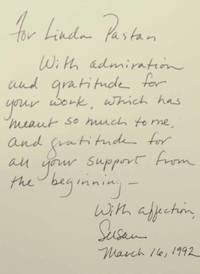 For Linda Pastan
With admiration
and gratitude for
your work, which has
meant so much to me,
and gratitude for
all your support from
the beginning —
With affection,
Susan
March 16, 1992